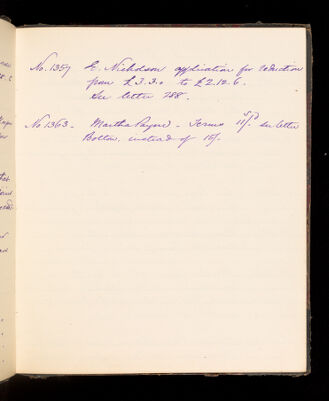 No. 1357 E. Nicholson application for reduction
from £3.3.0 to £2.12.6.
See letter 288.
No 1363. Martha Payne. Terms 11/- see letter
instead of 15/-